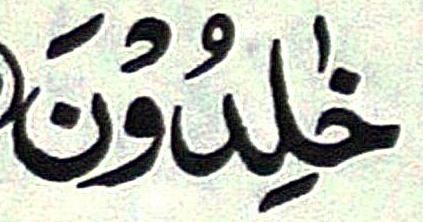 خٰلِدُوْنَ